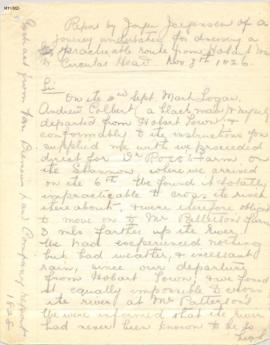 Report by Jorgen Jorgenson of a
journey undertaken for discovering a
practicable route from Hobart
to Circular Head. Nov 8th 1826.
Sir
On the 2nd Sept. Mark Logan,
Andrew Colbert, (a black man) & myself
departed from Hobart Town, &
conformably to the instructions
supplied me with we proceeded
direct for Dr Ross's Farm on
the Shannon, where we arrived
on the 6th. We found it totally
impracticable to cross the river
there about, & were therefore obliged
to move on to Mr Patterson's Farm
3 mls farther up the river,
We had experienced nothing
but bad weather, & incessant
rain, since our departure
from Hobart Town, & we found
it equally impossible to cross
the river at Mr Patterson's
We were informed that the river
had never been known to be so
high
Extract from Van Diemen's Land Company report
1826